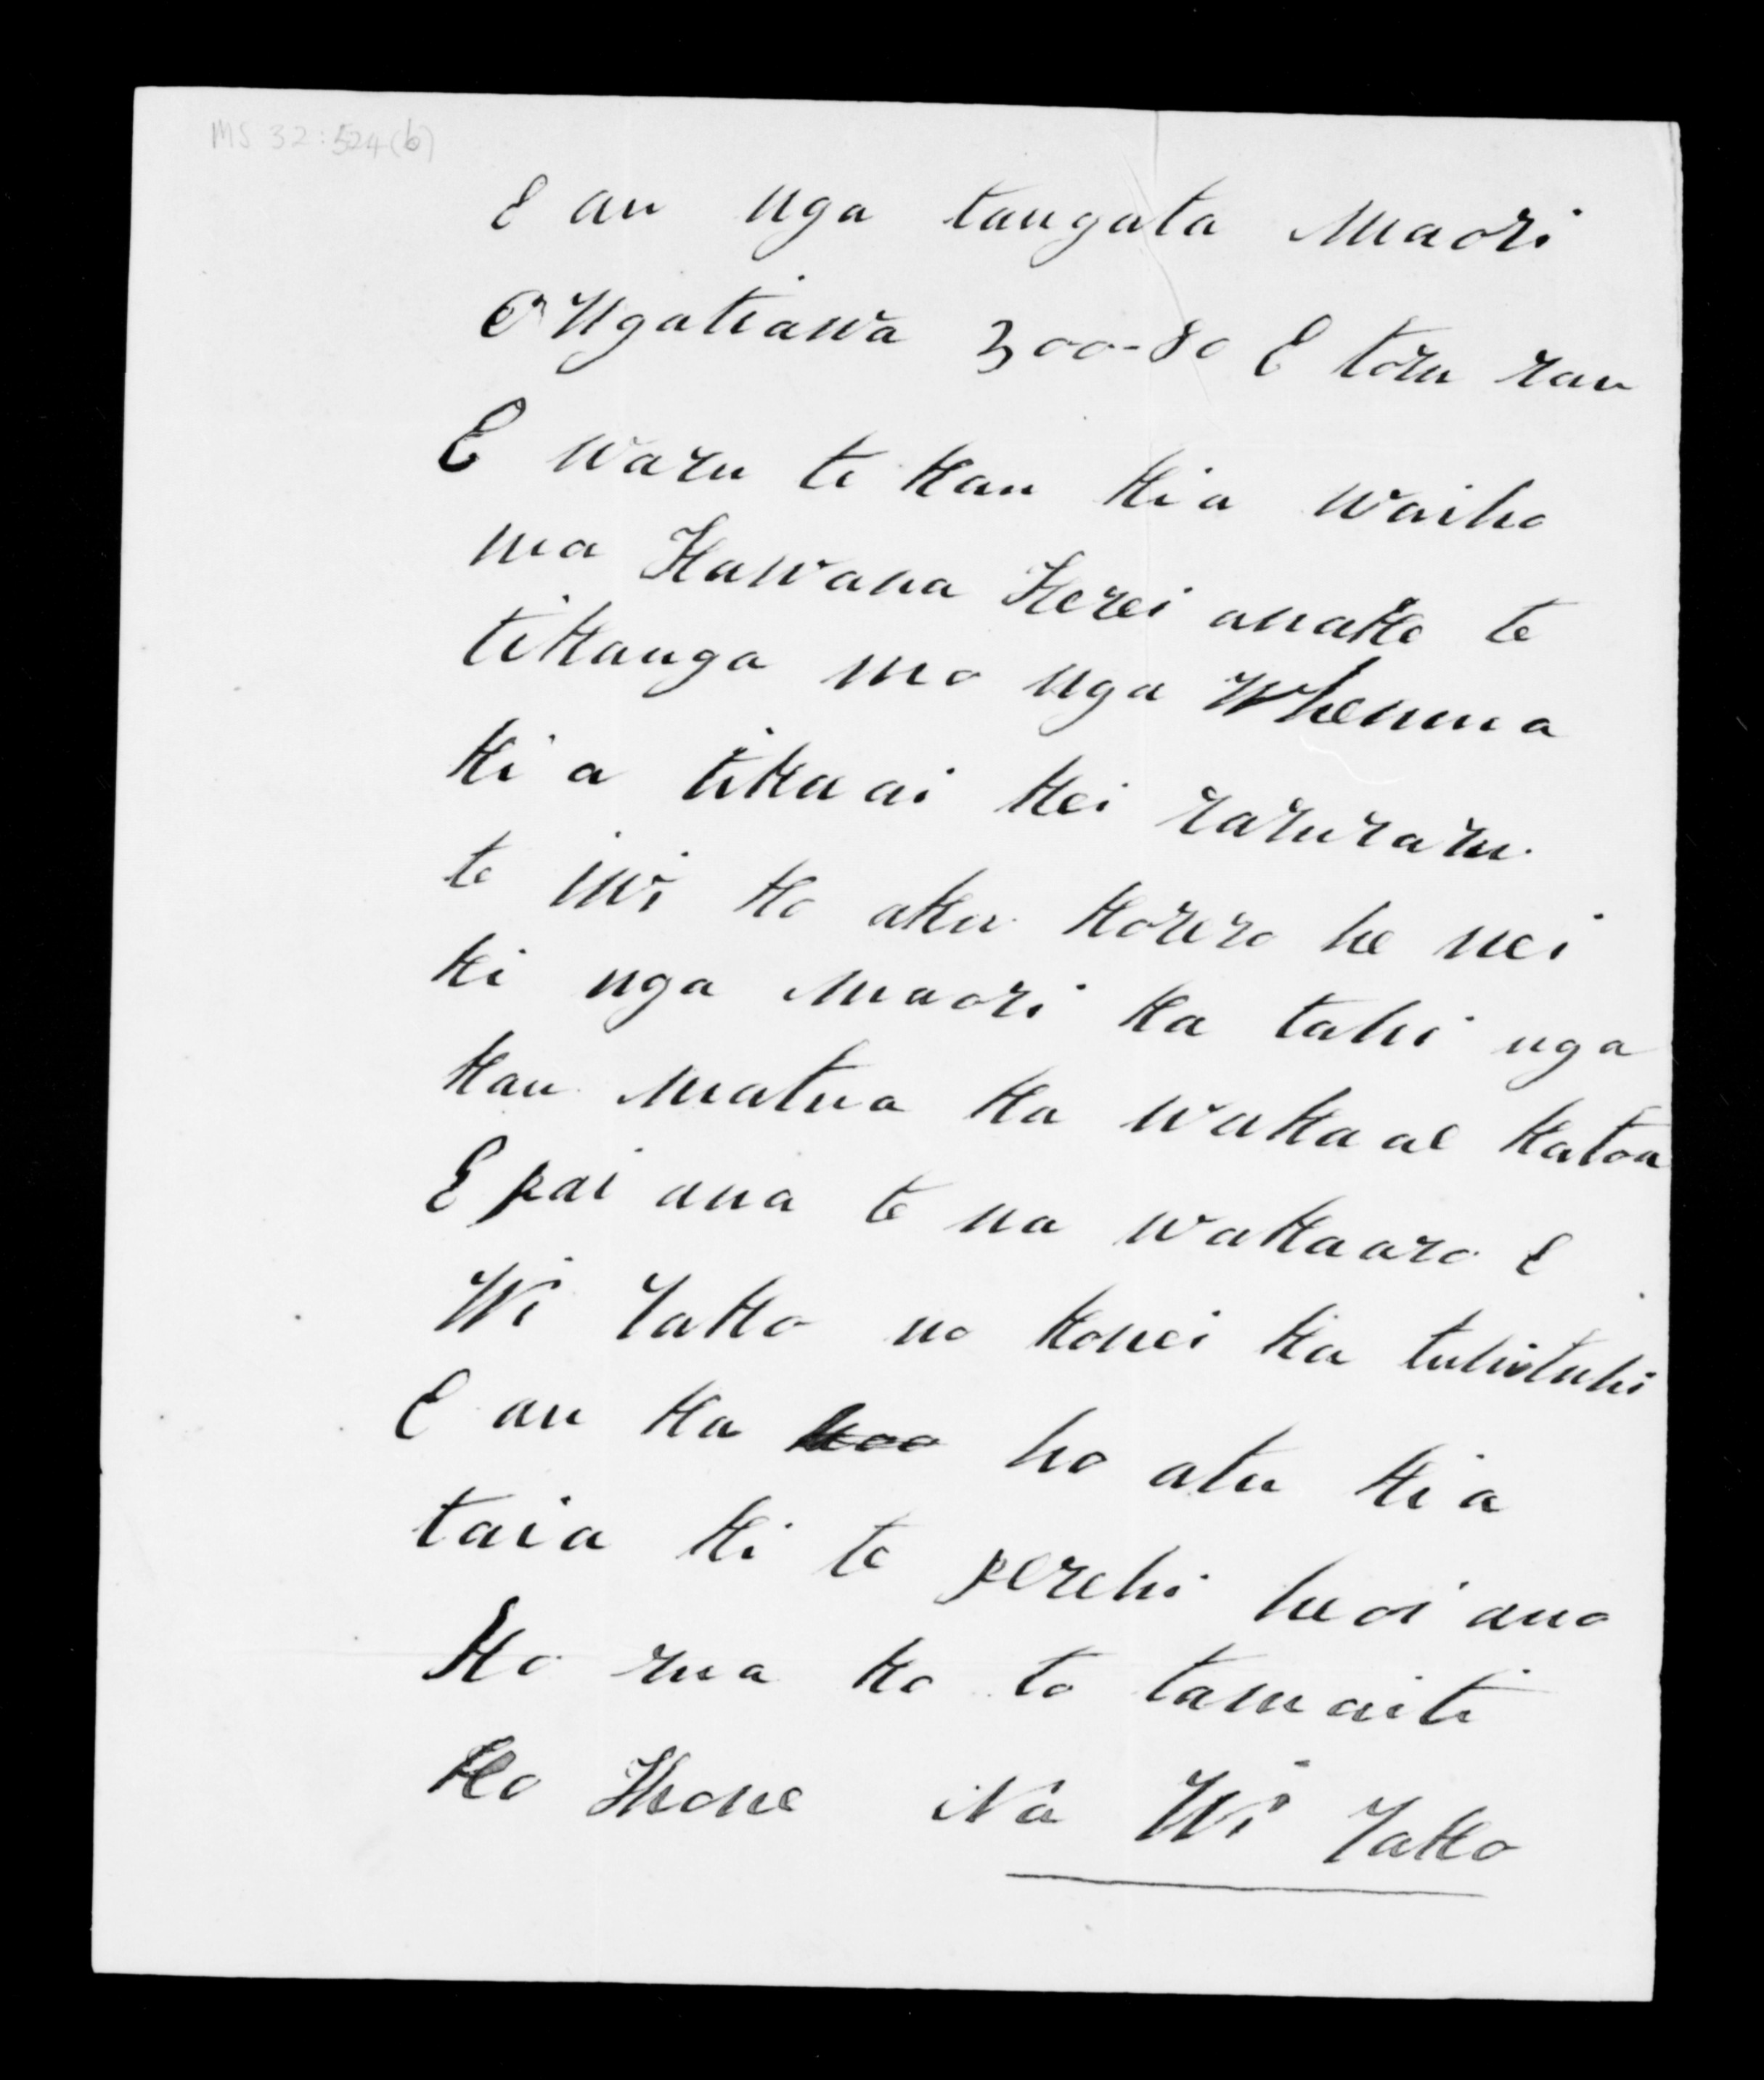 MS 32:524(b)
E au nga tangata Maori
O Ngatiawa 300-80 E toru rau
E waru te kau kia waiho
ma Kawana Kerei anake te
tikanga mo nga Whenua
kia tika ai kei raruraru
te iwi ko aku korero he nei
ki nga Maori ka tahi nga
kau matua ka wakaae katoa
E pai ana te na wakaaro E
Wi Tako no konei ka tuhituhi
E au ka ho atu kia
taia ki te perehi heoi ano
Ko rua ko to tamaiti
Ko Hone Na Wi Tako